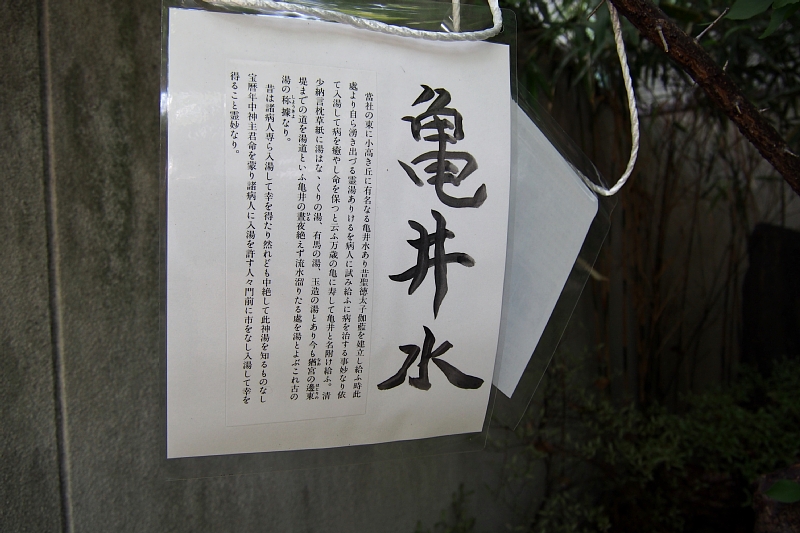 亀井水
當社の東に小高き丘に有名なる亀井水あり昔聖徳太子伽藍を建立し給ふ時此
處より自ら湧き出づる霊湯ありけるを病人に試み給ふに病を治する事妙なり依
て入湯して病を癒やし命を保つと云ふ万歳の亀に寿して亀井と名附け給ふ。清
少納言枕草紙に湯はな、くりの湯、有馬の湯、玉造の湯とあり今も猶宮の邊東
堤までの道を湯道といふ亀井の晝夜絶えず流水溜りたる處を湯とよぶこれ古の
湯の称據なり。
昔は諸病人専ら入湯して幸を得たり然れども中絶して此神湯を知るものなし
宝暦年中神主君命を蒙り諸病人に入湯を許す人々門前に市をなし入湯して幸を
得ること霊妙なり。